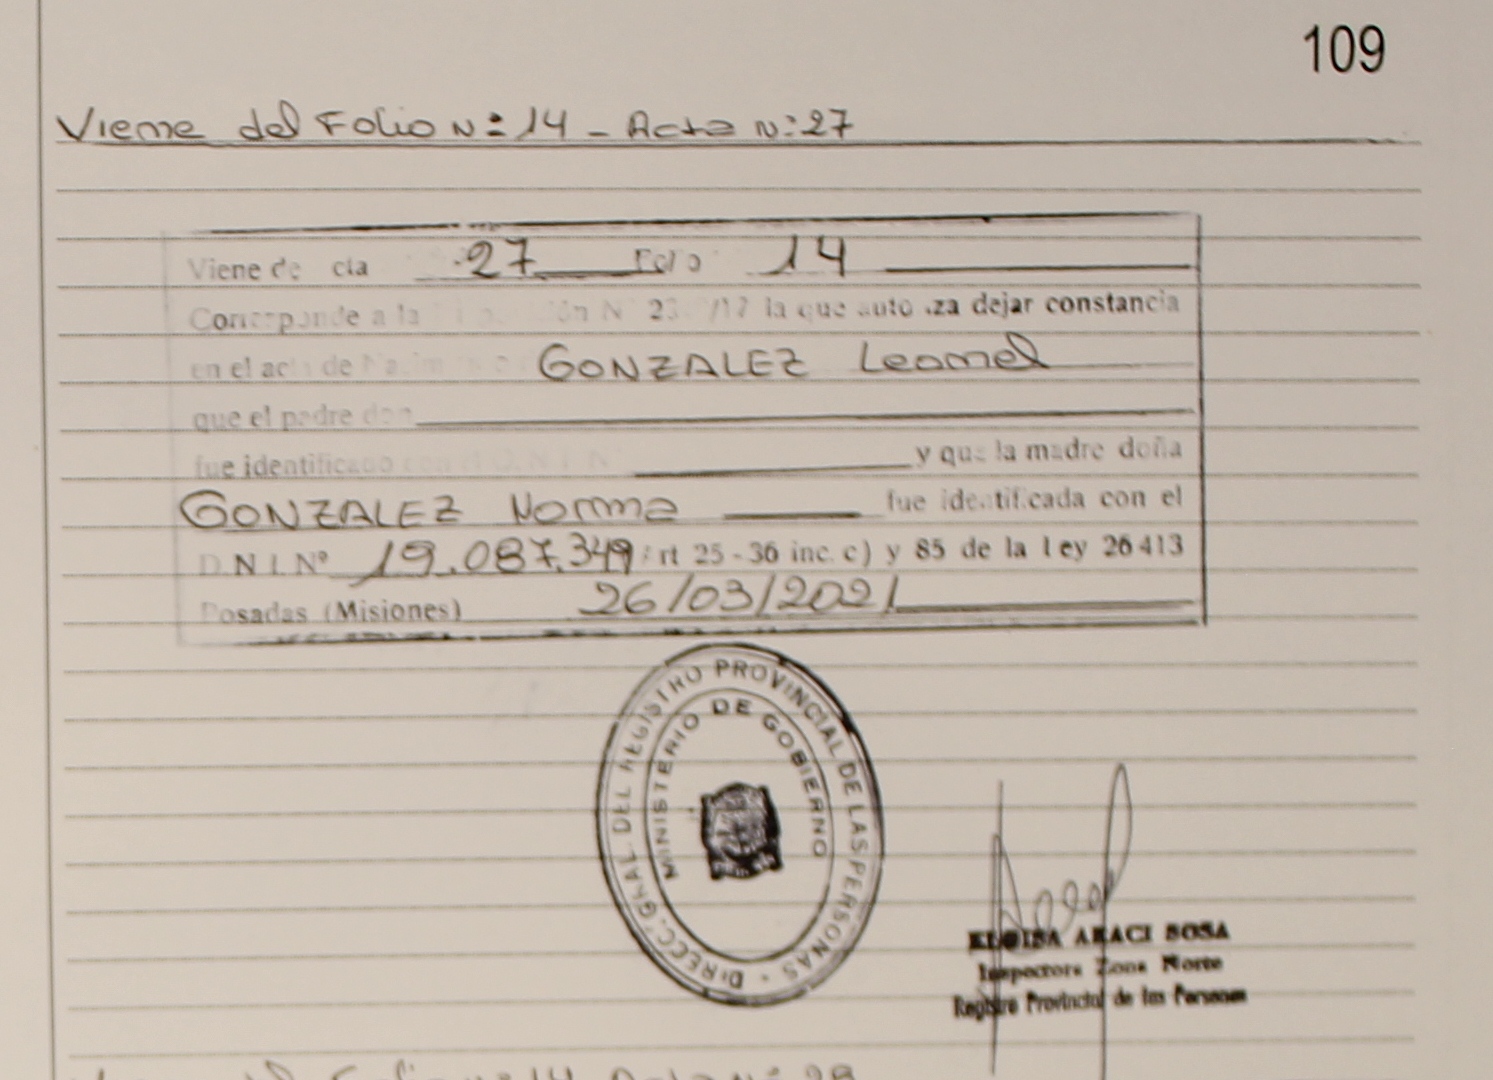 109
Viene del Folio N: 14 - Acta N: 27
Viene de cta 27 Folio 14
Corresponde a la N 23 /17 la que auto iza dejar constancia
en el acta de GONZALEZ Leonel
que el padre don
fue identificado con el D.N.I. N y que la madre doña
GONZALEZ Norma fue identificada con el
D.N.I. Nº 19.087.349 rt 25 - 36 inc. c) y 85 de la ley 26413
Posadas (Misiones) 26/03/2021
DIRECC. GRAL. DEL REGISTRO PROVINCIAL DE LAS PERSONAS -
MINISTERIO DE GOBIERNO
ELOISA ARACI SOSA
Inspectora Zona Norte
Registro Provincial de las Personas
Folio 14 Acta N: 28